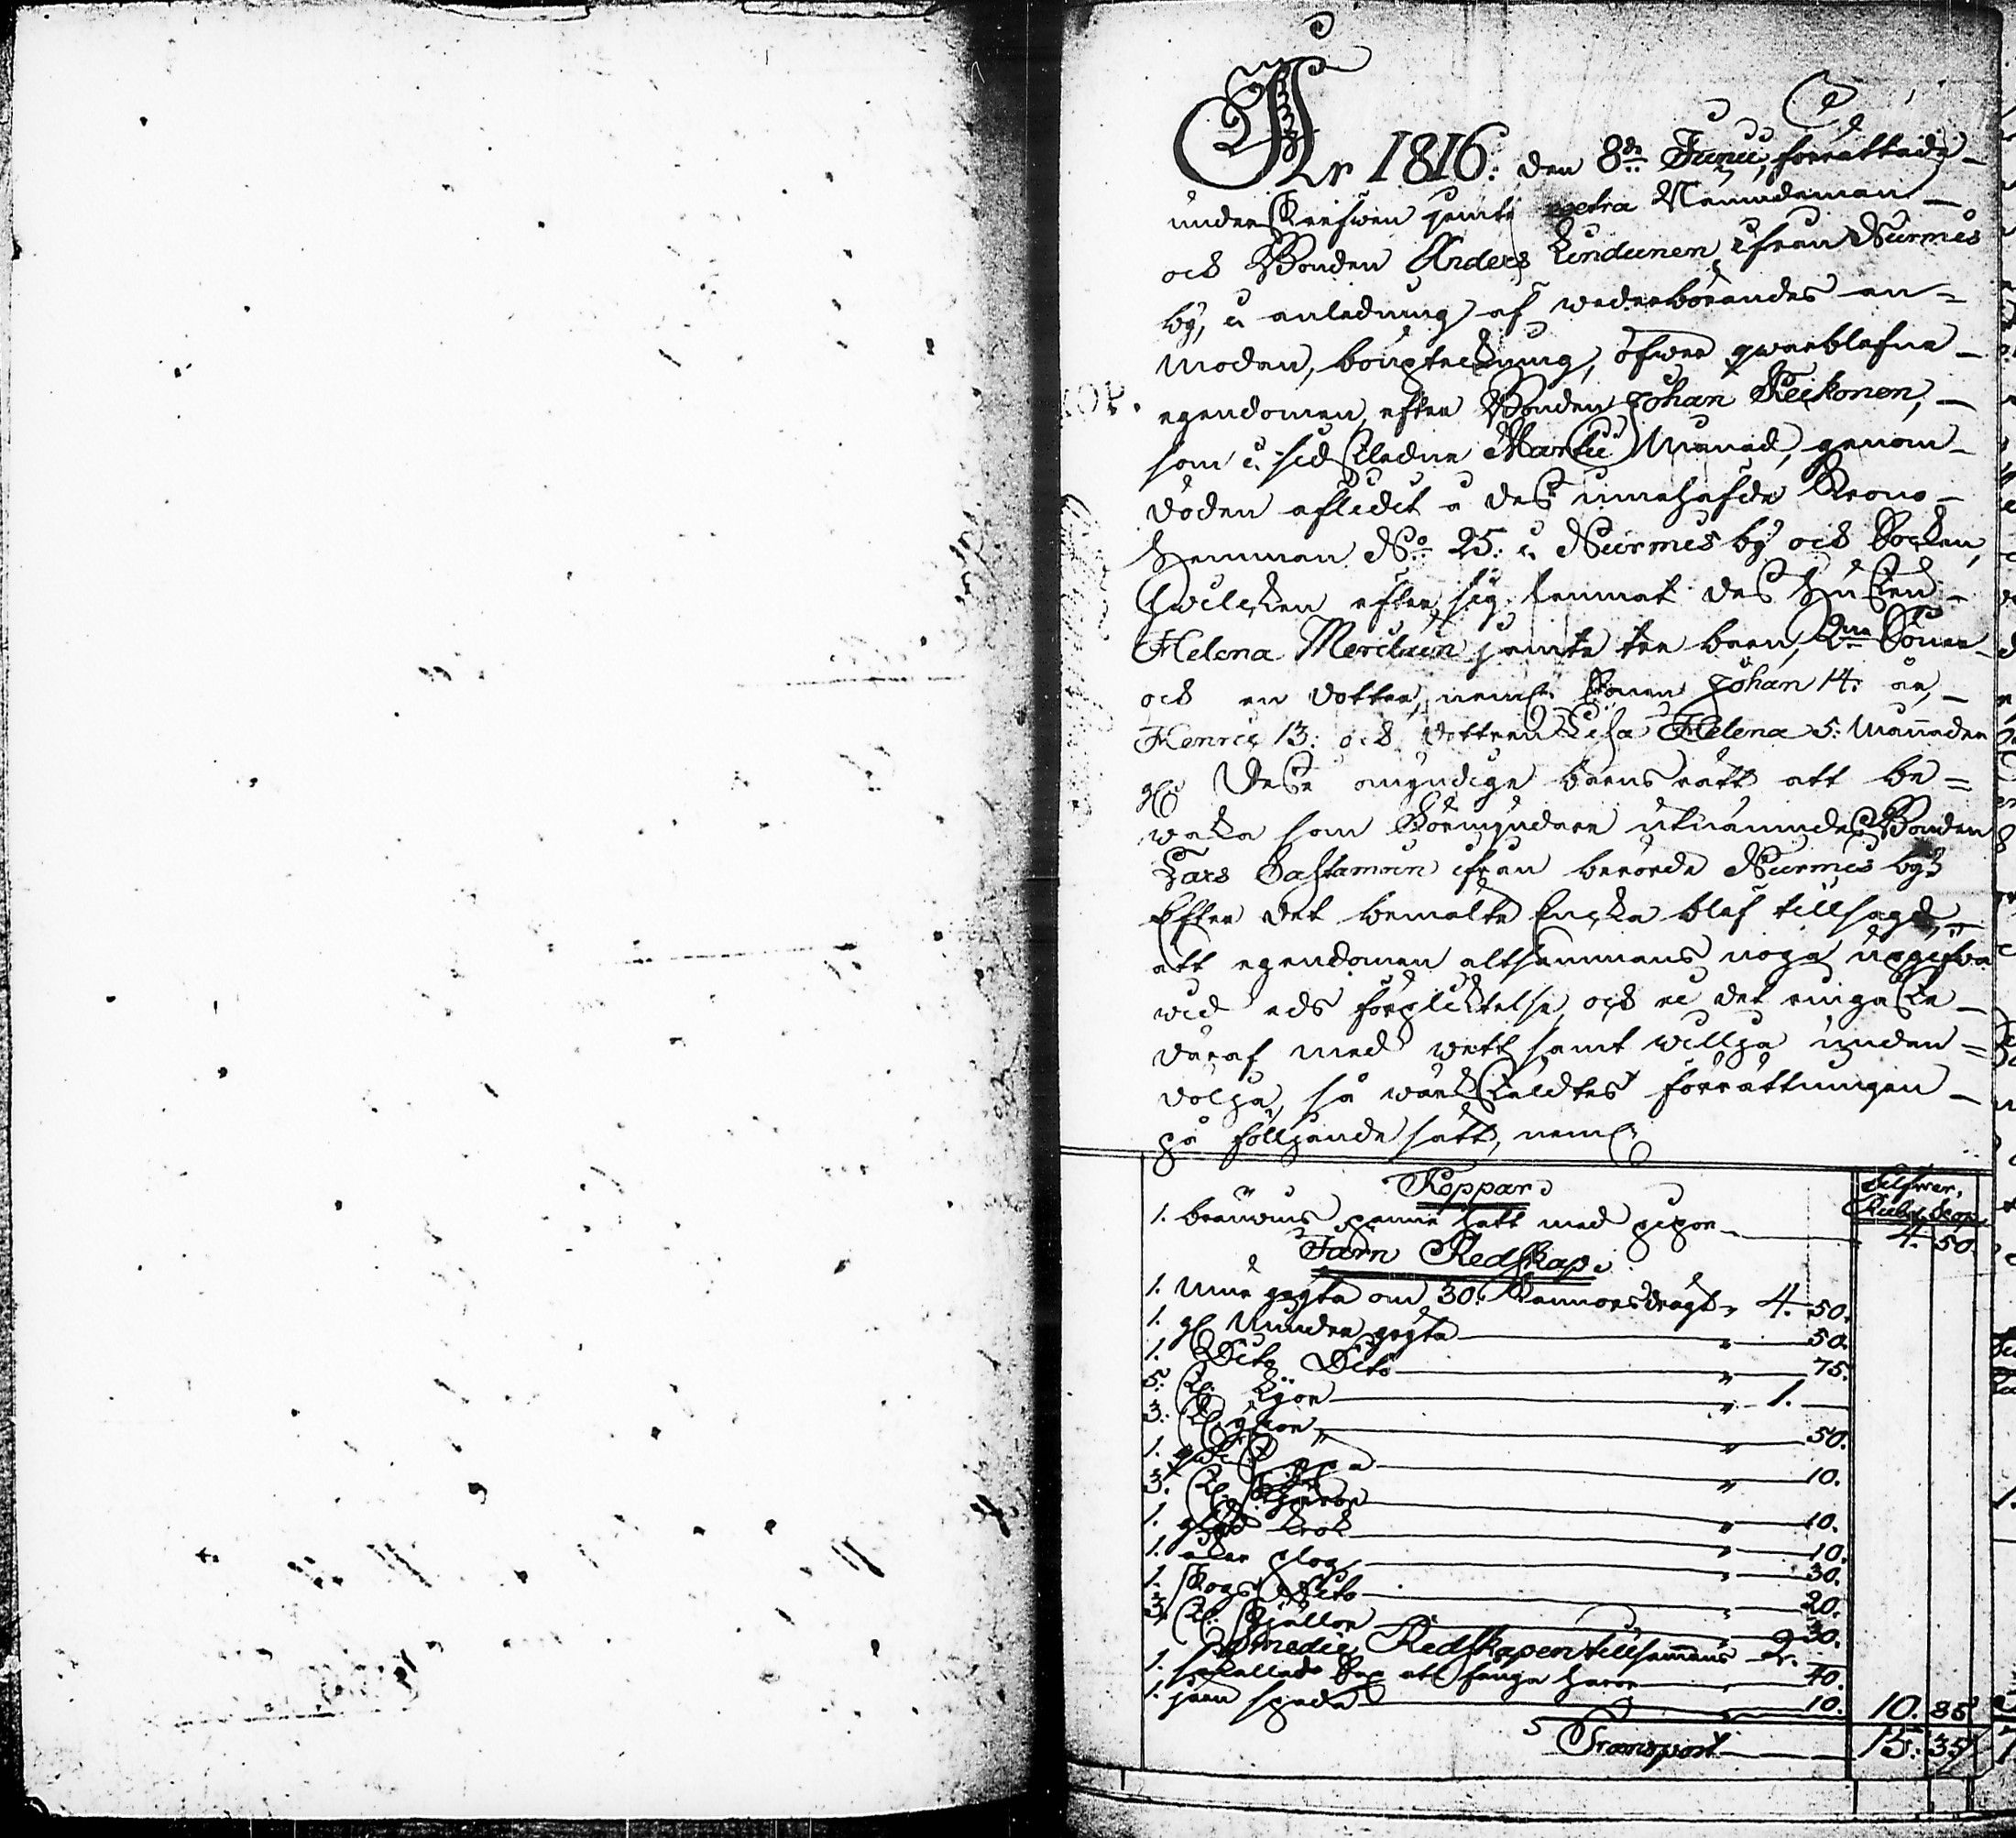 År 1816. den 8de Junii, förrättade
underskrefwen jemte extra Nämndeman
och Bonden Anders Lindunen, ifrån Nurmis
by, i anledning af wederbörandes an=
modan, boupteckning, öfwer qwarblefne
egendomen efter Bonden Johan Keikonen,
som i sidstledne Martii Månad, genom
döden aflidit å dess innehafde Krono
Hemman No 25. i Nurmis by och Socken,
hwilcken efter sig lemnat dess hustru
Helena Merelain jemte tre barn, 2ne Söner
och en dotter, neml. Sonen Johan 14. år,
Henric 13. och dottren Lisa Helena 5. Månader
gl. Desse omyndige barns rätt att be=
waka som Förmyndare utnämndes Bonden
Lars Sastamoin ifrån berörde Nurmis by;
Efter det bemälte Encka blef tillsagd,
att egendomen altsammans noga uppgifwa
wid eds förplicktelse, och ei det ringaste
däraf med wett samt willja unden=
dölja, så wärckstäldtes förrättningen
på följande sätt, neml.
Koppar Silfwer.
Rubel Kop.
1. bränwins panne hatt med pipor 4. 50.
Järn Redskap.
1. Mur gryta om 30. Kannors dragt " 4. 50.
1. gl. Mindre gryta " 50.
1. Dito Dito " 75.
5. st. Lijor " 1.
3. st. yxor " 50.
1. " 10.
3. st. Skäror " 10.
1. krok " 10.
1. åker plog " 30.
1. Skogs Dito " 20.
3. st. Skjällor " 30.
Smedie Redskapen tillsammans 2.
1. så kallad Sax att fånga harar 40.
1. järn spada " 10. 10. 85.
Transport 15. 35